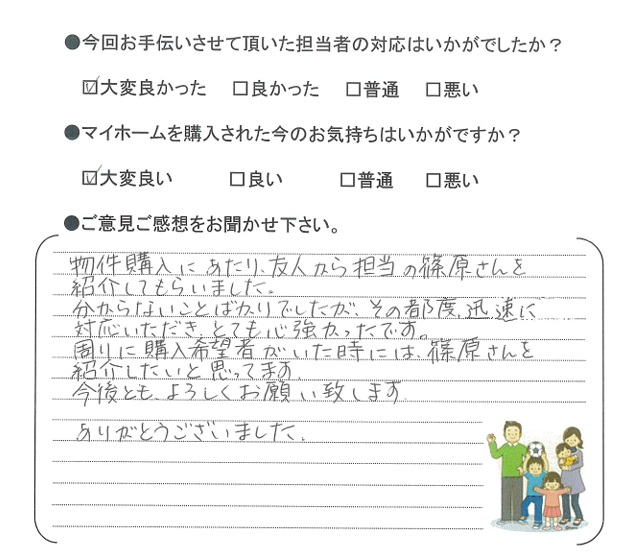 ●今回お手伝いさせて頂いた担当者の対応はいかがでしたか？
☑大変良かった □良かった □普通 □悪い
●マイホームを購入された今のお気持ちはいかがですか？
☑大変良い □良い □普通 □悪い
●ご意見ご感想をお聞かせ下さい。
物件購入にあたり、友人から担当の篠原さんを
紹介してもらいました。
分からないことばかりでしたが、その都度、迅速に
対応いただき、とても心強かったです。
周りに購入希望者がいた時には、篠原さんを
紹介したいと思ってます。
今後とも、よろしくお願い致します。
ありがとうございました。